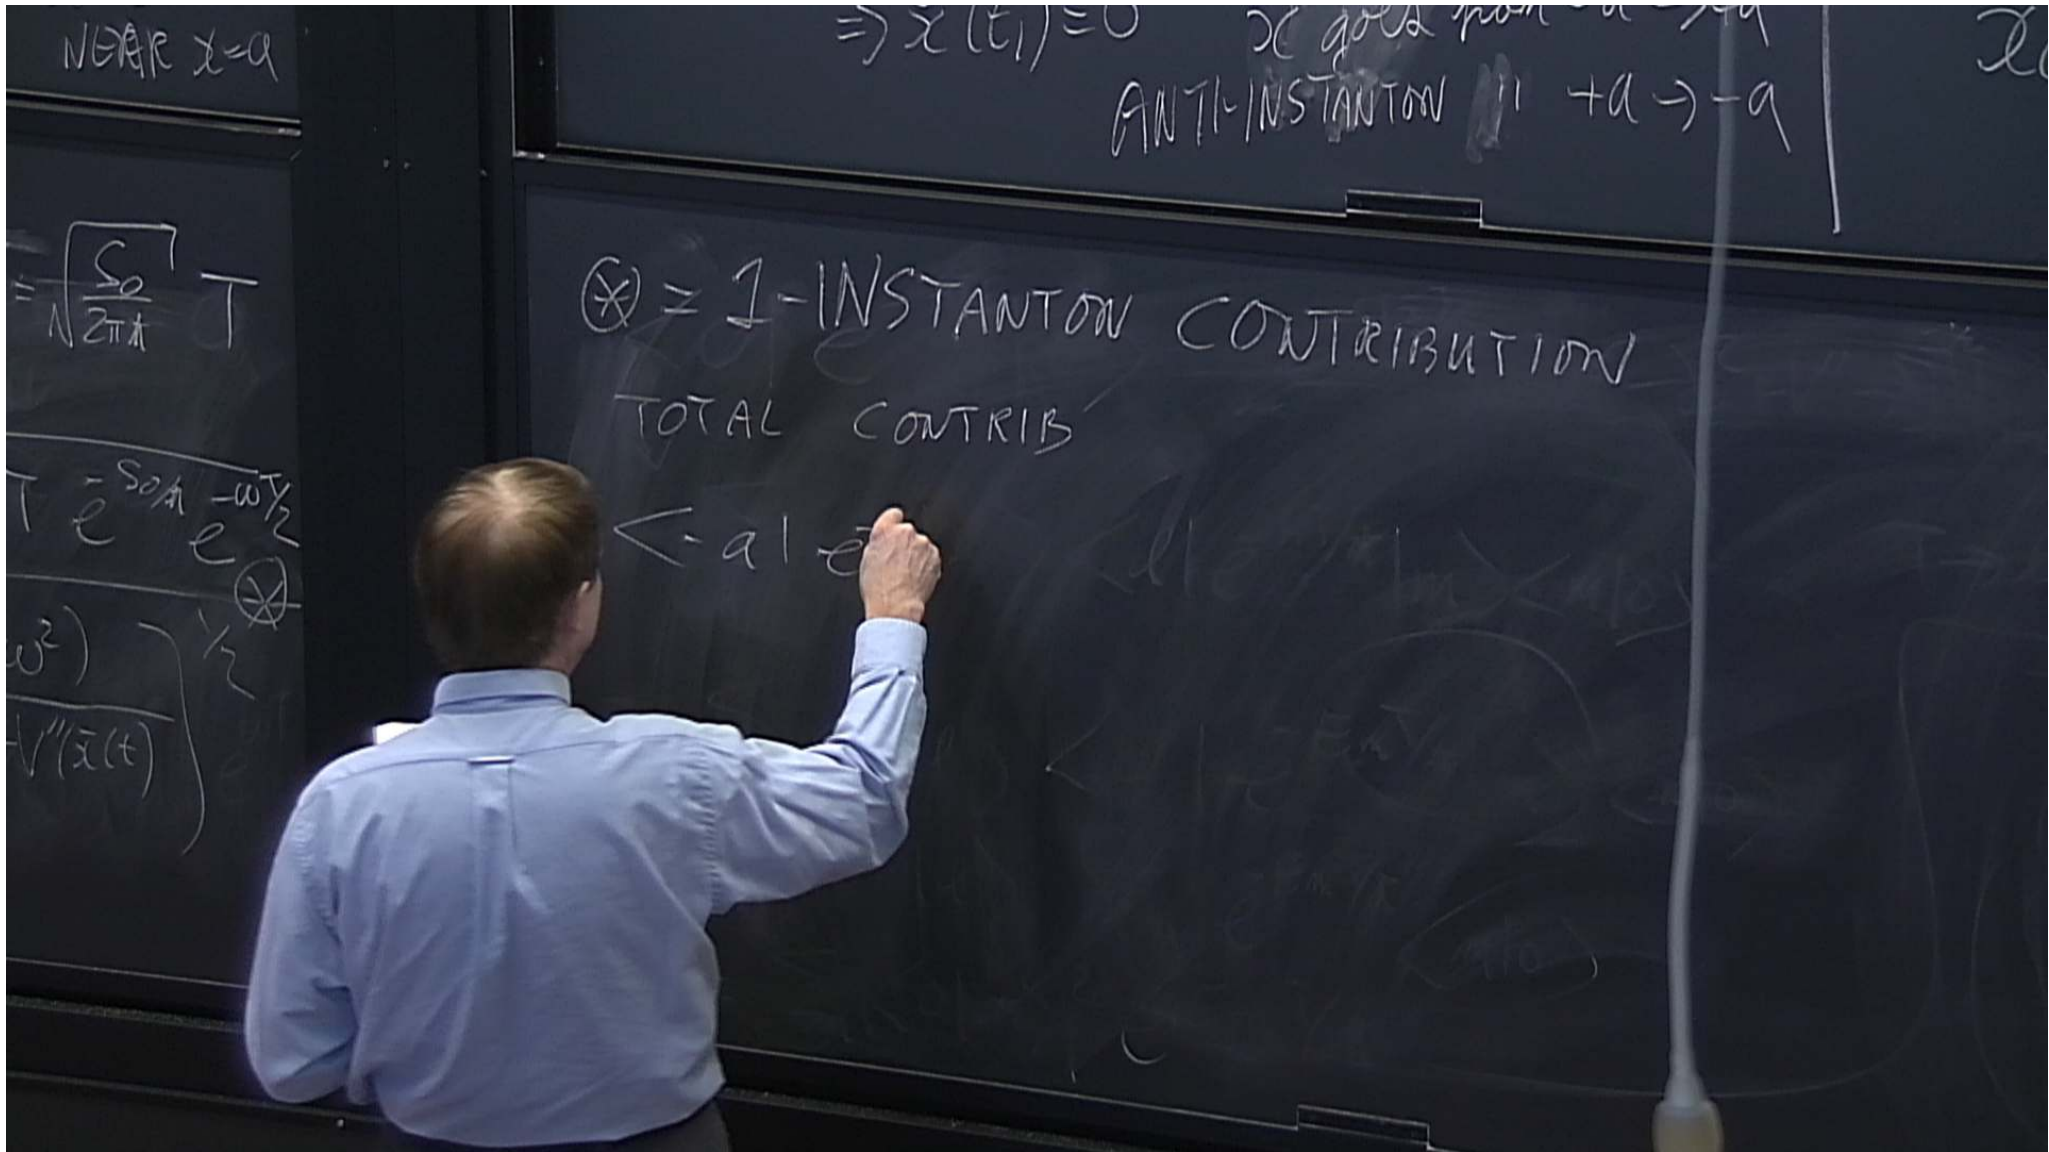 NEAR x=a
= √(S₀/2πħ) T
T e^{-S₀/ħ} e^{-ωT/2}
⊛
ω²)
V''(x̄(t)
)^{1/2}
=> x̄(t₁)=0 x goes from -a → +a
ANTI-INSTANTON " +a → -a
⊛ = 1-INSTANTON CONTRIBUTION
TOTAL CONTRIB
<-a| e